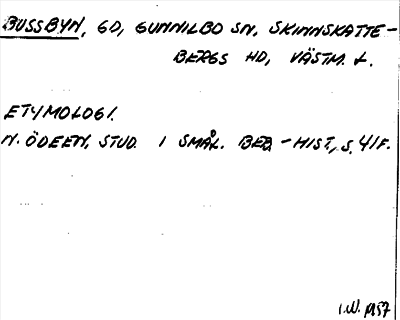 BUSSBYN, GD, GUNNILBO SN, SKINNSKATTE-
BERGS HD, VÄSTM. L.
ETYMOLOGI.
N. ÖDEEN, STUD. I SMÅL. BEB.-HIST., S. 41F.
I.W. 1957